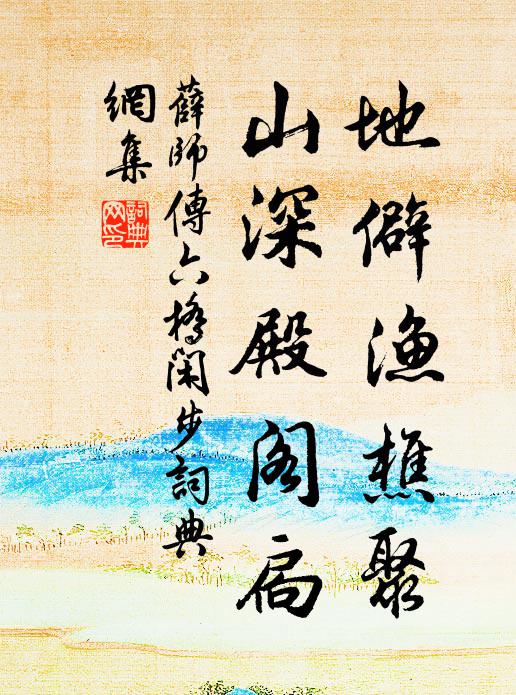 地僻漁樵聚
山深殿阁扃
薛師傳六橋闲步詞典
網集
詞典網印